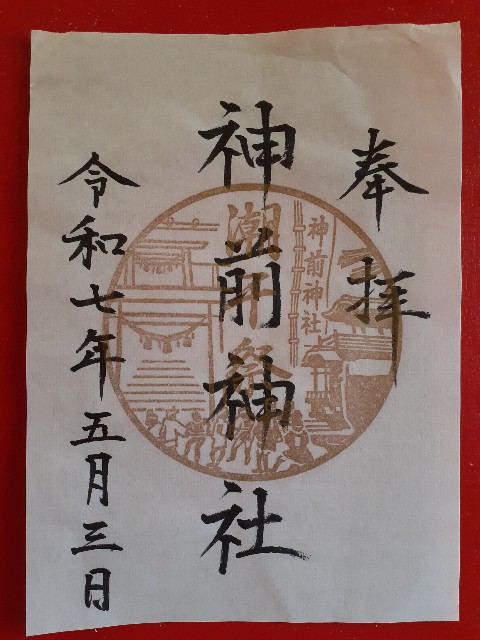 奉拝
神前神社
潮干祭
神前神社
令和七年五月三日